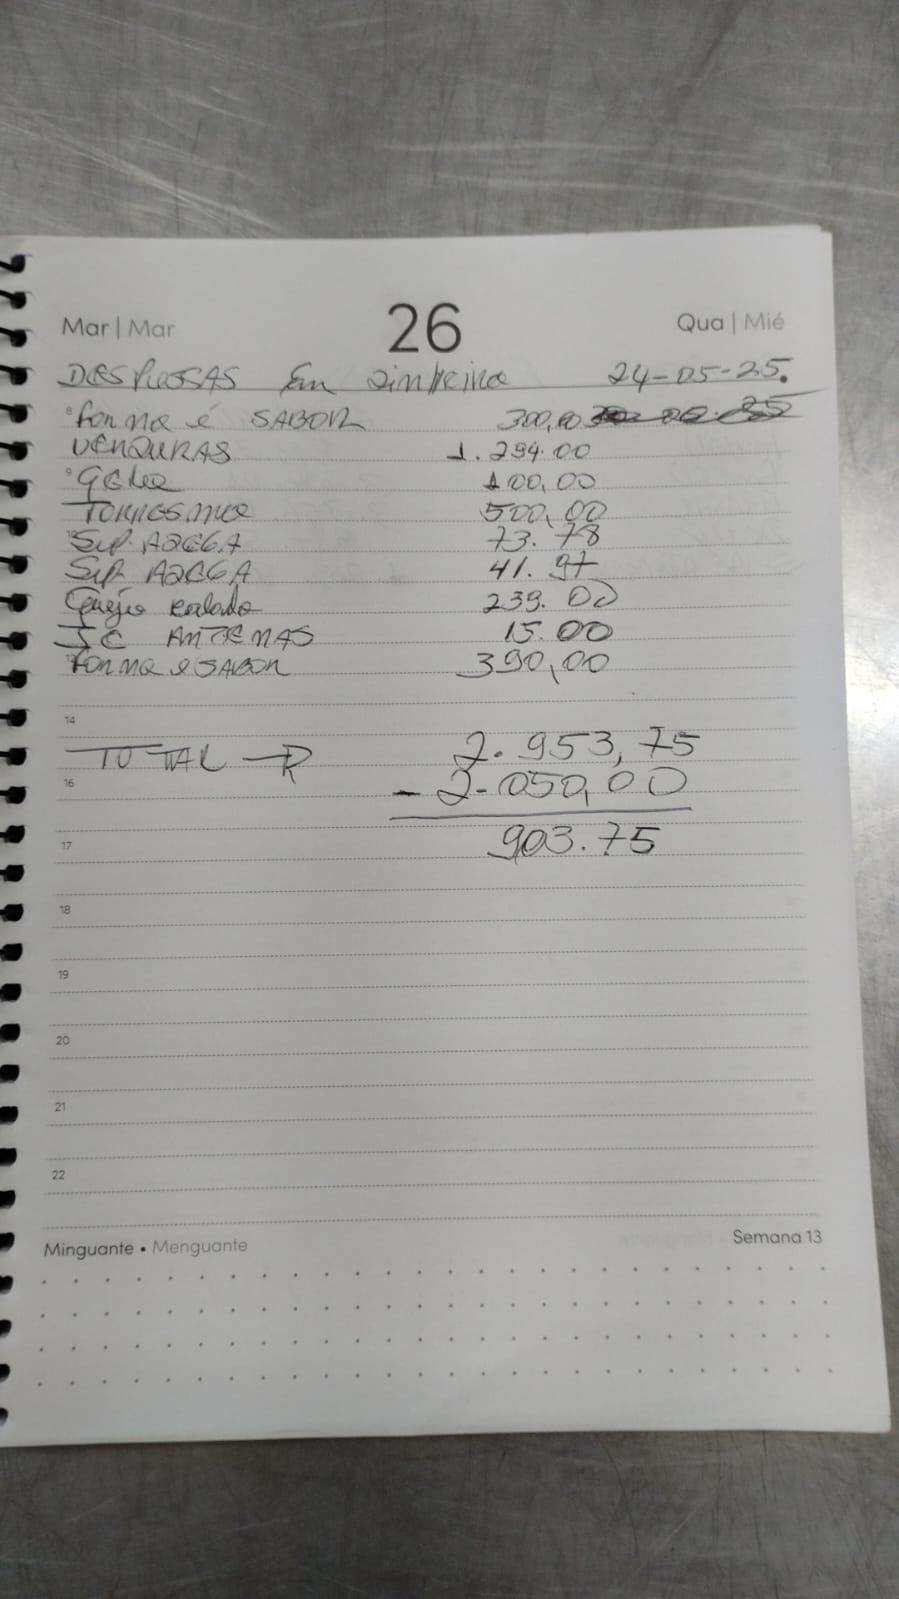 Mar | Mar 26 Qua | Mié
DESPESSAS Em Dinheiro 24-05-25.
8 Forma é SABOR 300,00
VERDURAS 1.294.00
9 Gelo 100,00
TORRESMO 500,00
Sup. A2C6A 73.78
Sup. A2C6A 41.97
Queijo Ralado 239.00
JC ANTENAS 15.00
Forma e SABOR 390,00
14
TOTAL → 2.953,75
16 - 2.050,00
17 903.75
18
19
20
21
22
Minguante • Menguante Semana 13